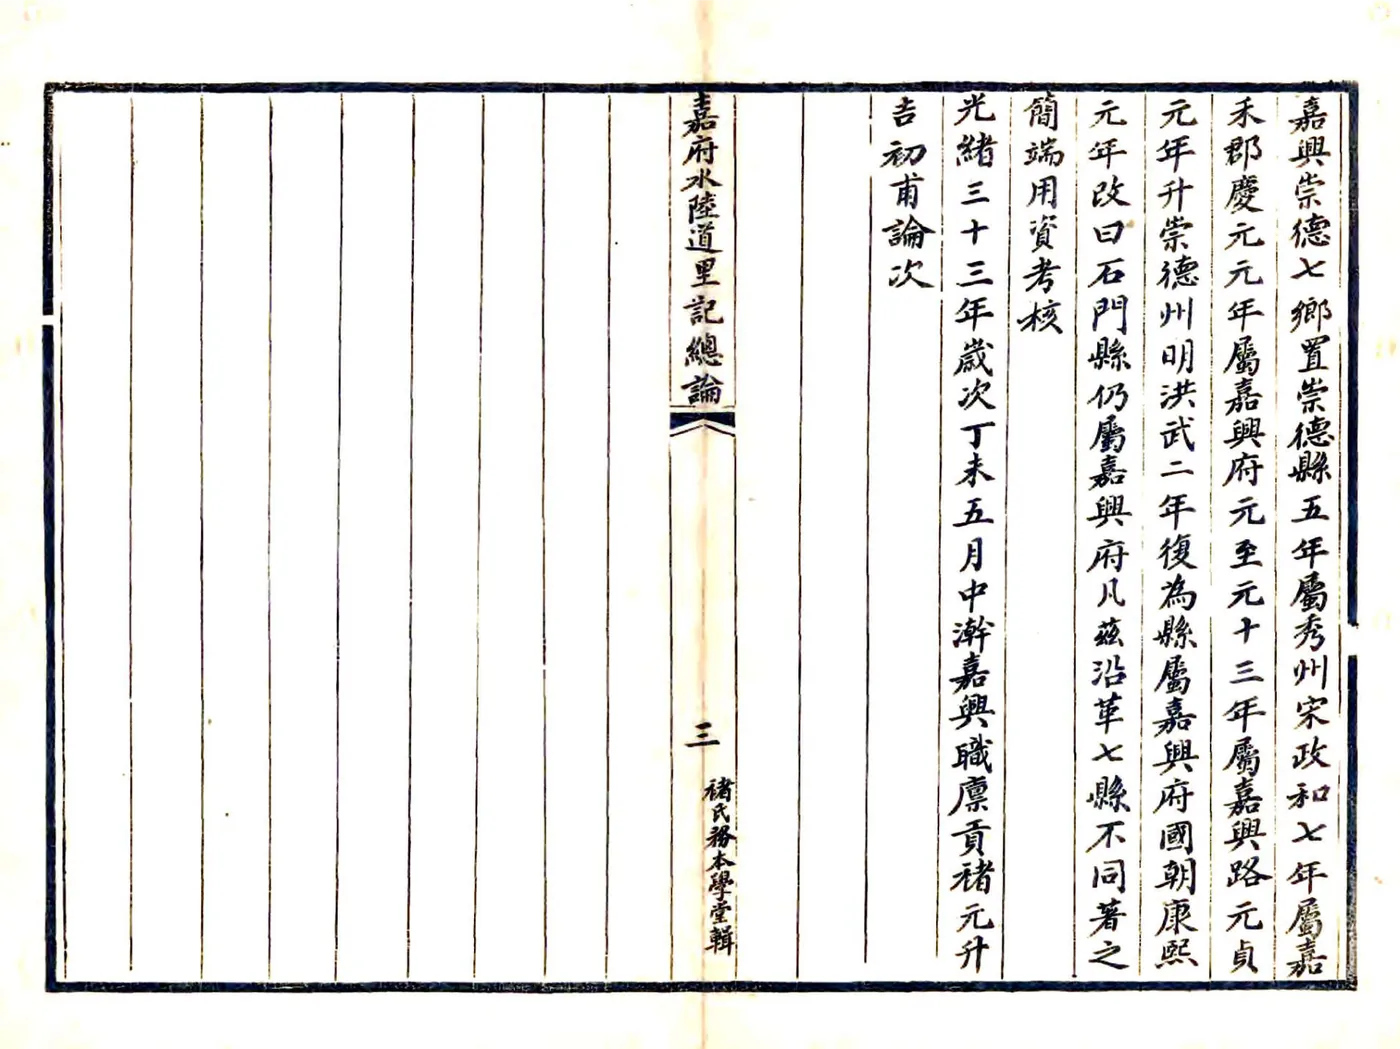 嘉興崇德七鄉置崇德縣五年屬秀州宋政和七年屬嘉
禾郡慶元元年屬嘉興府元至元十三年屬嘉興路元貞
元年升崇德州明洪武二年復為縣屬嘉興府國朝康熙
元年改曰石門縣仍屬嘉興府凡茲沿革七縣不同著之
簡端用資考核
光緒三十三年歲次丁未五月中澣嘉興職廩貢褚元升
吉初甫論次
嘉府水陸道里記總論
三
褚氏務本學堂輯